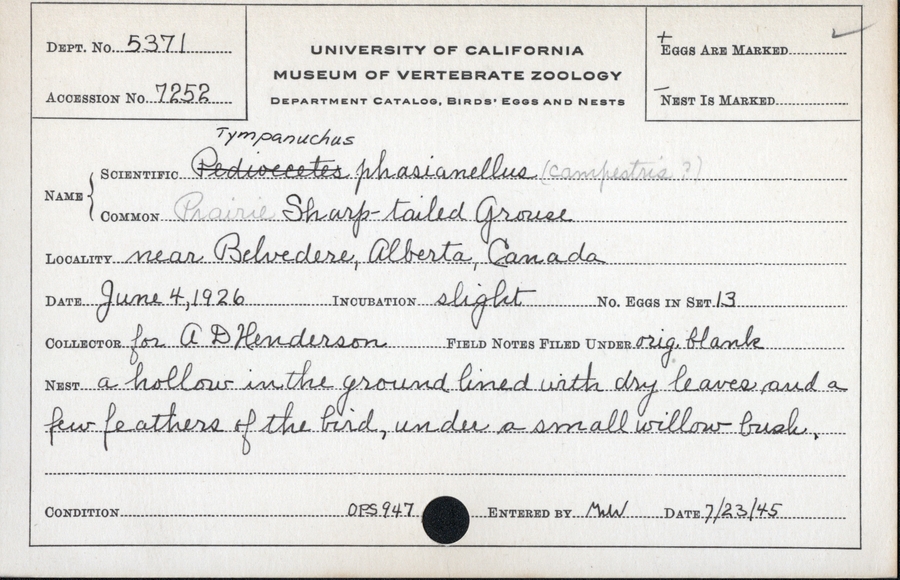 DEPT. No. 5371
ACCESSION No. 7252
UNIVERSITY OF CALIFORNIA
MUSEUM OF VERTEBRATE ZOOLOGY
DEPARTMENT CATALOG, BIRDS' EGGS AND NESTS
+ EGGS ARE MARKED
- NEST IS MARKED
Tympanuchus
NAME
SCIENTIFIC Pediocetes phasianellus (campestris ?)
COMMON Prairie Sharp-tailed Grouse
LOCALITY near Belvedere, Alberta, Canada
DATE June 4, 1926 INCUBATION slight No. EGGS IN SET 13
COLLECTOR for A D Henderson FIELD NOTES FILED UNDER orig. blank
NEST a hollow in the ground lined with dry leaves and a
few feathers of the bird, under a small willow bush.
CONDITION OPS947 ENTERED BY DATE 7/23/45